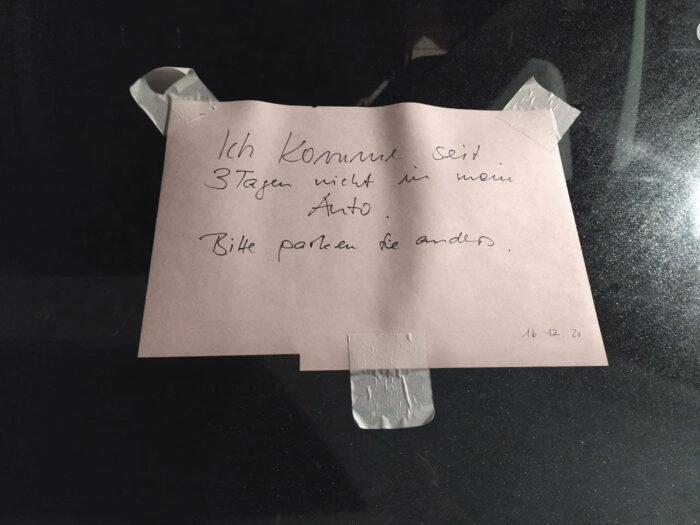 Ich komme seit
3 Tagen nicht in mein
Auto.
Bitte parken Sie anders.
16.12.21